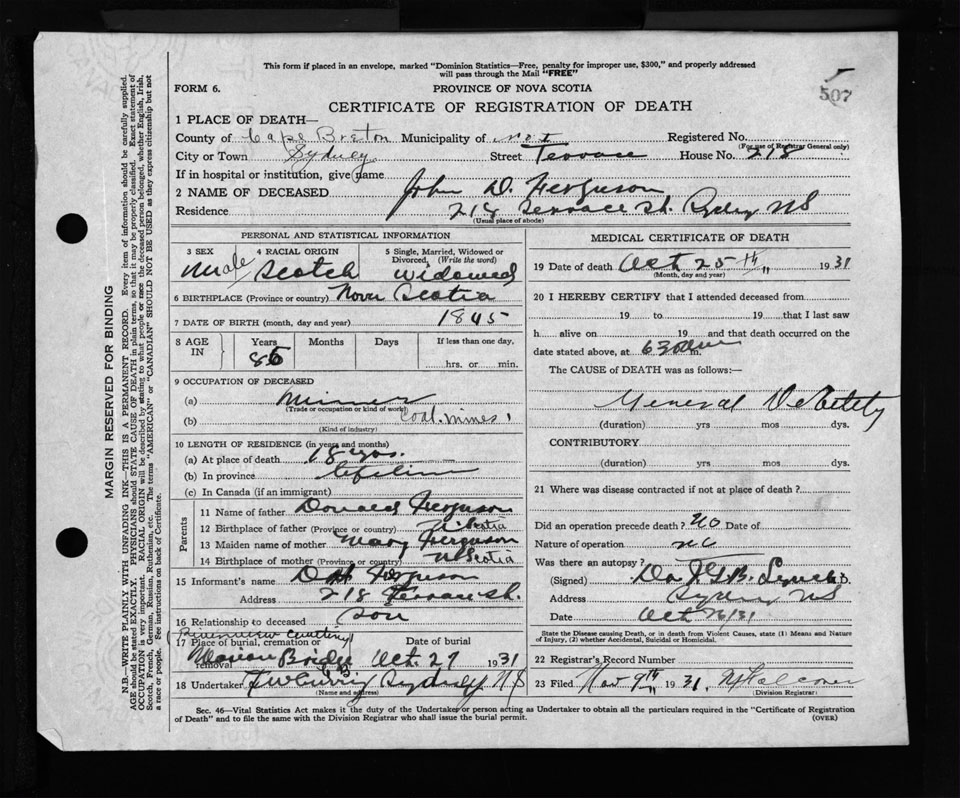 This form if placed in an envelope, marked "Dominion Statistics—Free, penalty for improper use, $300," and properly addressed
will pass through the Mail "FREE"
507
FORM 6. PROVINCE OF NOVA SCOTIA
CERTIFICATE OF REGISTRATION OF DEATH
1 PLACE OF DEATH—
County of Cape Breton Municipality of No 1 Registered No.
(For use of Registrar General only)
City or Town Sydney Street Terrace House No. 218
If in hospital or institution, give name
2 NAME OF DECEASED John D. Ferguson
Residence 218 Terrace St. Sydney NS
(Usual place of abode)
PERSONAL AND STATISTICAL INFORMATION
3 SEX 4 RACIAL ORIGIN 5 Single, Married, Widowed or Divorced, (Write the word)
Male Scotch Widowed
6 BIRTHPLACE (Province or country) Nova Scotia
7 DATE OF BIRTH (month, day and year) 1845
8 AGE IN Years Months Days If less than one day,
86 hrs. or min.
9 OCCUPATION OF DECEASED
(a) Miner
(Trade or occupation or kind of work)
(b) Coal. Mines
(Kind of industry)
10 LENGTH OF RESIDENCE (in years and months)
(a) At place of death 18 yrs.
(b) In province Lifetime
(c) In Canada (if an immigrant)
Parents
11 Name of father Donald Ferguson
12 Birthplace of father (Province or country) N Scotia
13 Maiden name of mother Mary Ferguson
14 Birthplace of mother (Province or country) N Scotia
15 Informant's name D H Ferguson
Address 218 Terrace St.
16 Relationship to deceased Son
17 Place of burial, cremation or removal Date of burial
cemetery
Marion Bridge Oct. 27 1931
C B
18 Undertaker Sydney NS
(Name and address)
MEDICAL CERTIFICATE OF DEATH
19 Date of death Oct 25th 1931
(Month, day and year)
20 I HEREBY CERTIFY that I attended deceased from
19 to 19 that I last saw
h alive on 19 and that death occurred on
date stated above, at 630 m.
The CAUSE of DEATH was as follows:—
General Debility
(duration) yrs mos dys.
CONTRIBUTORY
(duration) yrs mos dys.
21 Where was disease contracted if not at place of death?
Did an operation precede death? No Date of
Nature of operation No
Was there an autopsy?
(Signed) Lynch M.D.
Address Sydney NS
Date Oct 26/31
State the Disease causing Death, or in death from Violent Causes, state (1) Means and Nature
of Injury, (2) whether Accidental, Suicidal or Homicidal.
22 Registrar's Record Number
23 Filed Nov 9th 1931
(Division Registrar)
Sec. 46—Vital Statistics Act makes it the duty of the Undertaker or person acting as Undertaker to obtain all the particulars required in the "Certificate of Registration
of Death" and to file the same with the Division Registrar who shall issue the burial permit.
(OVER)
MARGIN RESERVED FOR BINDING
N.B.—WRITE PLAINLY WITH UNFADING INK—THIS IS A PERMANENT RECORD. Every item of information should be carefully supplied.
AGE should be stated EXACTLY. PHYSICIANS should STATE CAUSE OF DEATH in plain terms, so that it may be properly classified. Exact statement of
OCCUPATION is very important. RACIAL ORIGIN will be described by stating to what people or race the deceased person belonged, whether English, Irish,
Scotch, French, German, Russian, Ruthenian, etc. The terms "AMERICAN" or "CANADIAN" SHOULD NOT BE USED as they express citizenship but not
a race or people. See instructions on back of Certificate.